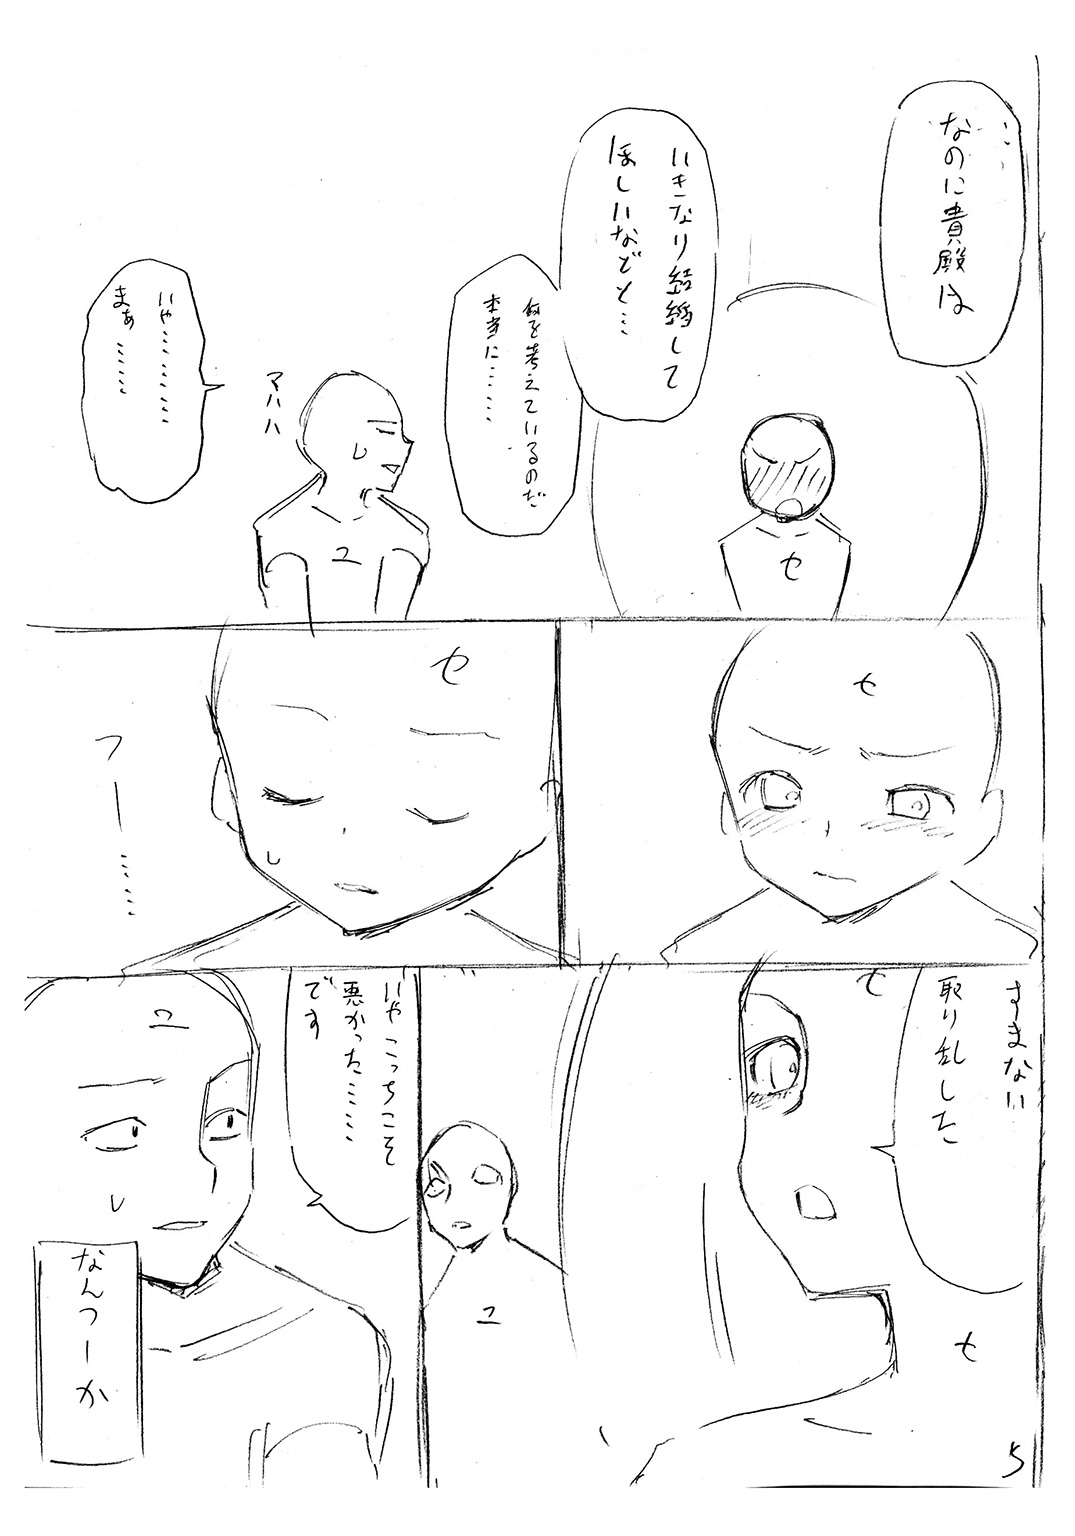 なのに貴殿は
いきなり結婚して
ほしいなどと…
何を考えているのだ
本当に………
マハハ
いや…………
まぁ………
ユ
セ
セ
セ
フー……
すまない
取り乱した
セ
セ
ユ
いやこっちこそ
悪かった……
です
ユ
なんつーか
5